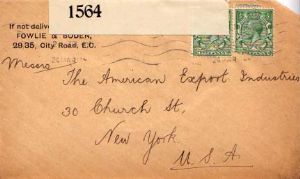 1564
If not delive
FOWLIE & BODEN,
29.35, City Road, E.C.
Messrs
The American Export Industries
30 Church St.
New York
U.S.A.